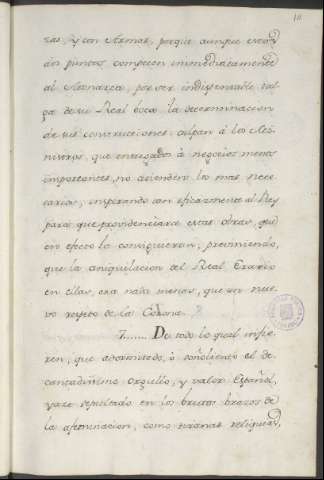 zas, y con Armas, porque aunque estos
dos puntos competen immediatamente
al Monarca, por ser indispensable salga
de su Real boca la determinacion
de sus construcciones, culpan á los Ministros,
que entregados á negocios menos
importantes, no atienden los mas necesarios,
inspirando con eficazmente al Rey
para que providenciara estas obras, que
en efecto la consiguieron, previniendo,
que la aniquilacion del Real Erario
en ellas, era nada menos, que ser nuevo
respeto de la Corona.
7...... De todo lo qual infieren,
que adormitado, ó soñoliento el decantadisimo
Orgullo, y valor Español,
yace sepultado en los brutos brazos de
la afeminacion, como